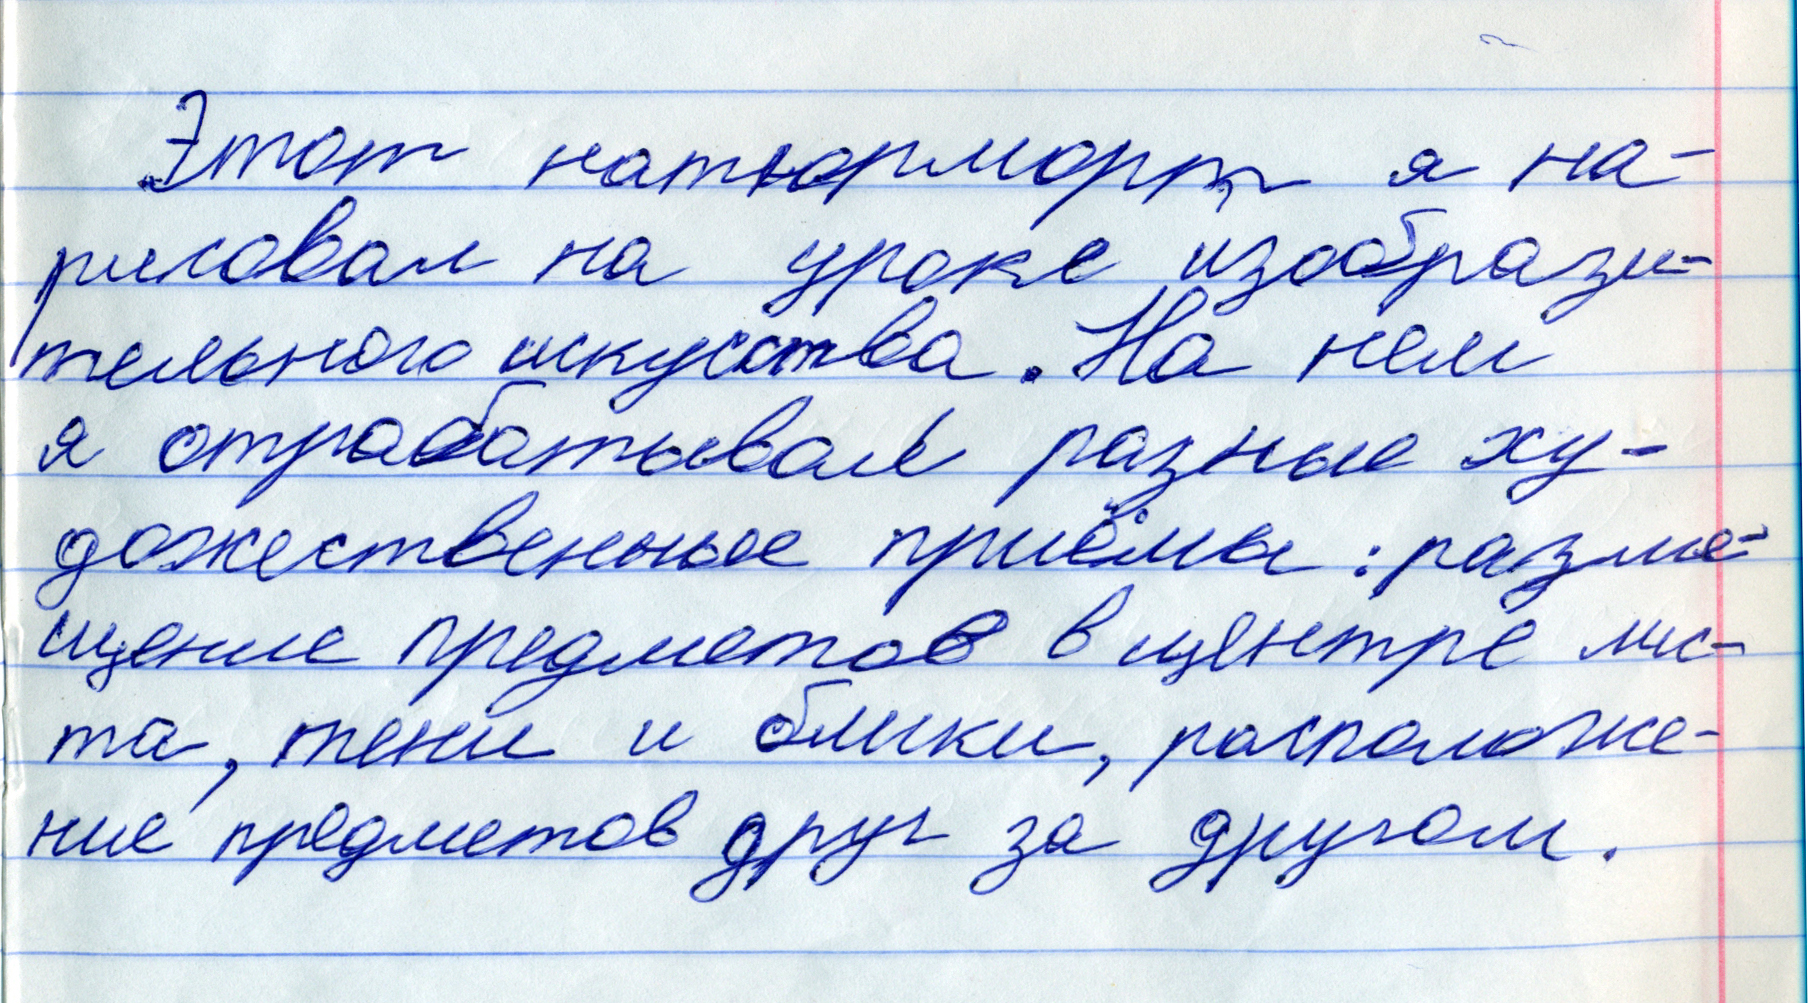 Этот натюрморт я на-
рисовал на уроке изобрази-
тельного искусства. На нем
я отрабатывал разные ху-
дожественные приёмы: разме-
щение предметов в центре лис-
та, тени и блики, расположе-
ние предметов друг за другом.